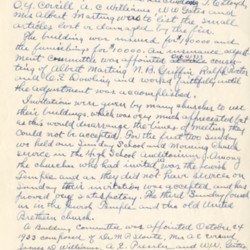 O. G. Covill, A. A. Williams
Mrs Albert Manting were to list the small
articles lost or damaged by the fire.
The building was insured for $ 0000 and
the furnishings for $ 0000. An insurance adjust
ment committee was appointed
of Albert Manting W. B. Griffin, Ralph
and A. E. and worked faithfully until
the adjustment was accomplished.
Invitations were given by many churches to use
their buildings, which was very much appreciated but
as this would disarrange the times of meeting they
could not be accepted. For the first two Sundays
we held our Sunday School and Morning Church
service in the High School Auditorium. Among
the churches who had invited us the Jewish
Temple and as they did not have services on
Sunday their invitation was accepted and has
proved very satisfactory. The third Sunday found
us in the Jewish Temple, the old United
Brethern church.
A Building Committee was appointed October
1933 composed of Mr. M. P. White, Mr. A. E.
James D. Williamson, A. E. Pressler and W. H.